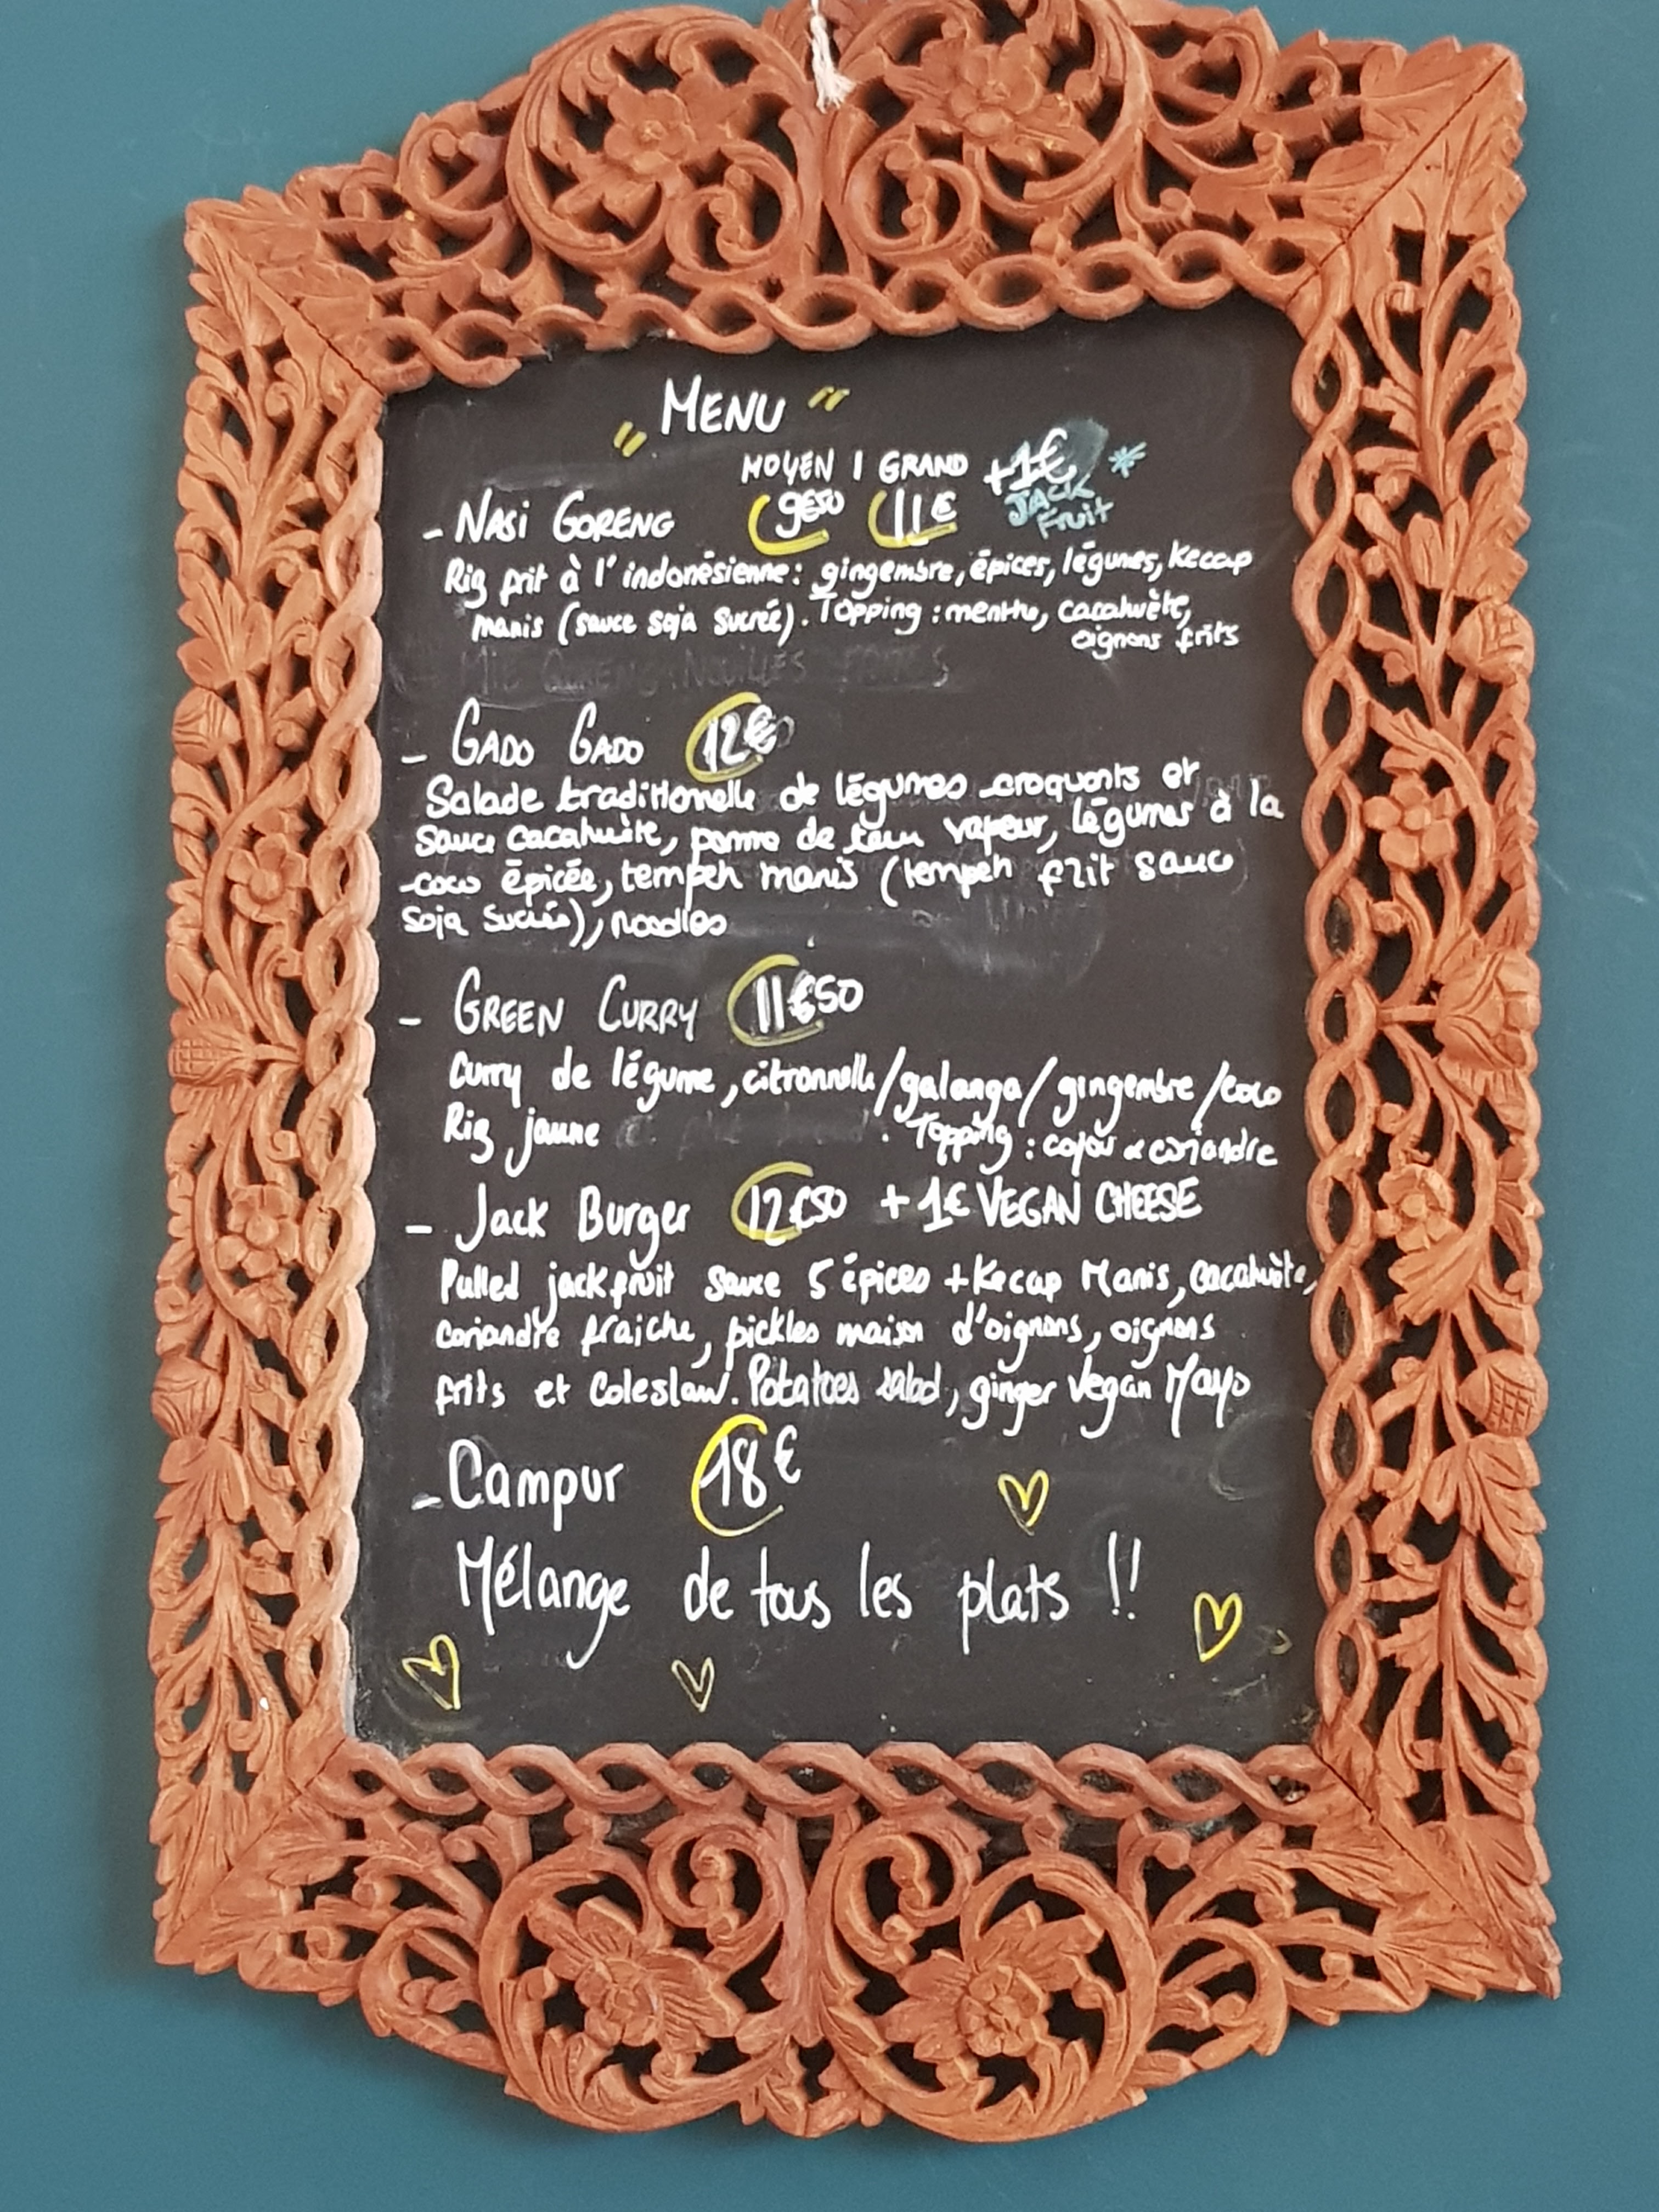 " MENU "
MOYEN | GRAND +1€ *
- NASI GORENG 9€50 11€ JACK
Fruit
Riz frit à l'indonésienne: gingembre, épices, légumes, kecap
manis (sauce soja sucrée). Topping : menthe, cacahuète,
oignons frits
MIE GORENG: NOUILLES FRITES
- GADO GADO 12€
Salade traditionelle de légumes croquants et
sauce cacahuète, pomme de terre vapeur, légumes à la
coco épicée, tempeh manis (tempeh frit sauce
soja sucrée), noodles
- GREEN CURRY 11€50
Curry de légume, citronnelle/galanga/gingembre/coco
Riz jaune . Topping : cajou & coriandre
- Jack Burger 12€50 + 1€ VEGAN CHEESE
Pulled jackfruit sauce 5 épices + Kecap Manis, cacahuète,
coriandre fraiche, pickles maison d'oignons, oignons
frits et Coleslaw. Potatoes salad, ginger vegan Mayo
- Campur 18€
Mélange de tous les plats !!